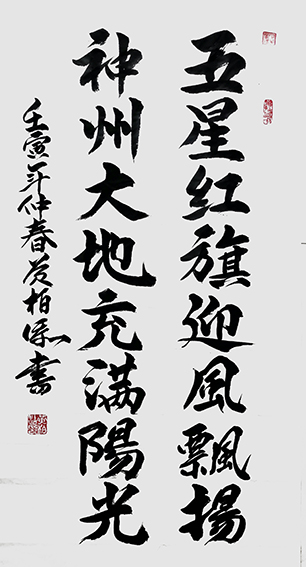 五星红旗迎風飄揚
神州大地充满陽光
壬寅年仲春黄柏源書